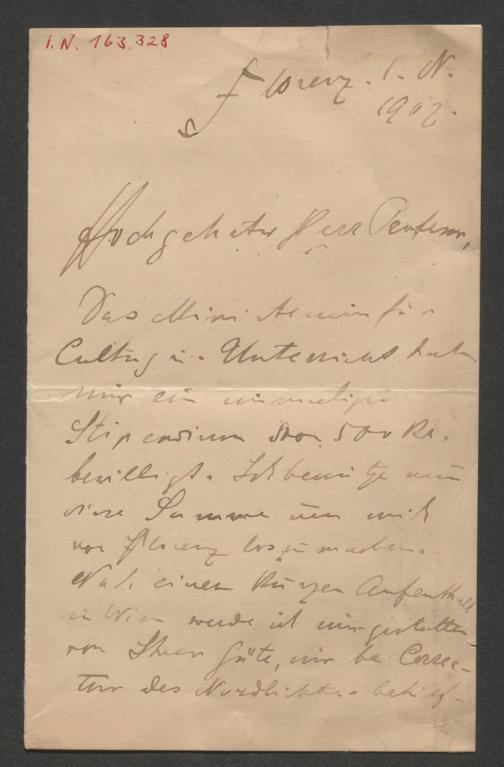 I.N. 163.328
Florenz. 1. N.
1902.
Hochgeehrter Herr Professor,
Das Ministerium für
Cultus u. Unterricht hat
mir ein einmaliges
Stipendium von 500 Kr.
bewilligt. Ich benütze nun
diese Summe um mich
von Florenz loszumachen.
Nach einem kurzen Aufenthalt
in Wien werde ich mir gestatten
von Ihrer Güte, mir bei Correc-
tur des Nordlichtes behilf-